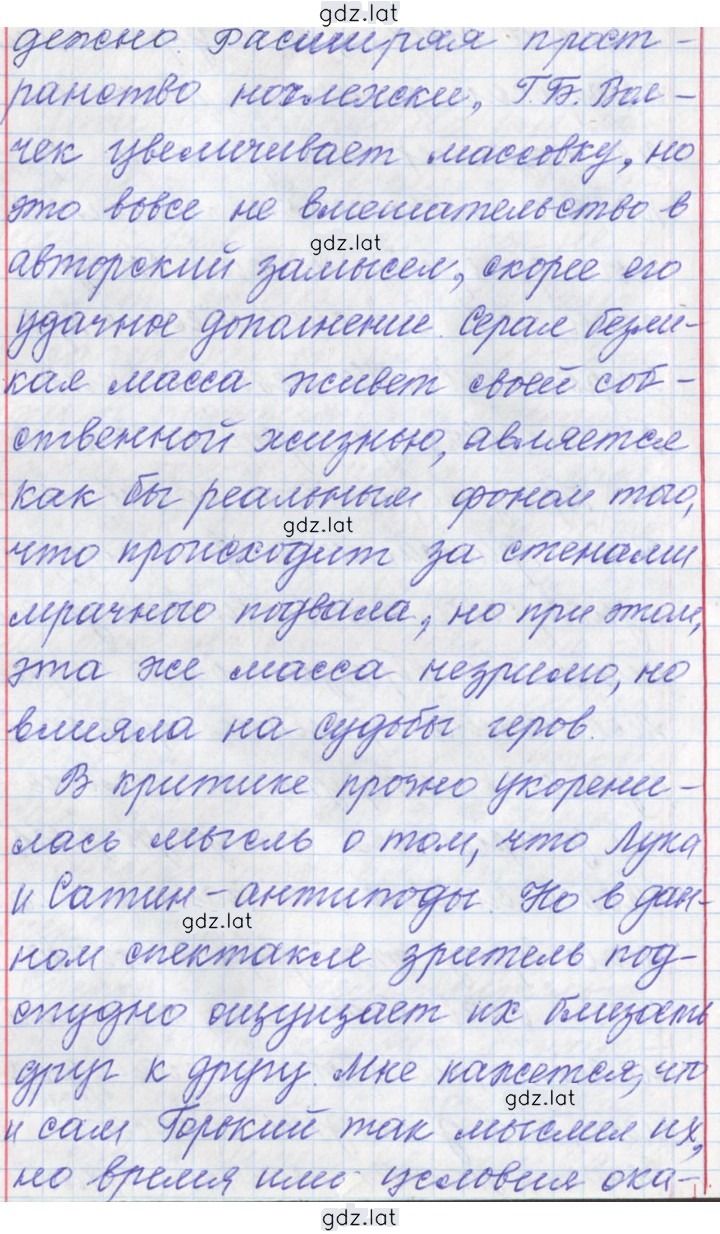 gdz.lat
дежно. Расширяя прост-
ранство ночлежки, Г.Б. Вол-
чек увеличивает массовку, но
это вовсе не вмешательство в
gdz.lat
авторский замысел, скорее его
удачное дополнение. Серая безли-
кая масса живет своей соб-
ственной жизнью, является
как бы реальным фоном того,
gdz.lat
что происходит за стенами
мрачного подвала, но при этом,
эта же масса незримо, но
влияла на судьбы геров.
В критике прочно укорени-
лась мысль о том, что Лука
и Сатин-антиподы. Но в дан-
gdz.lat
ном спектакле зритель под-
спудно ощущает их близость
друг к другу. Мне кажется, что
gdz.lat
и сам Горький так мыслил их,
но время или условия ока-
gdz.lat